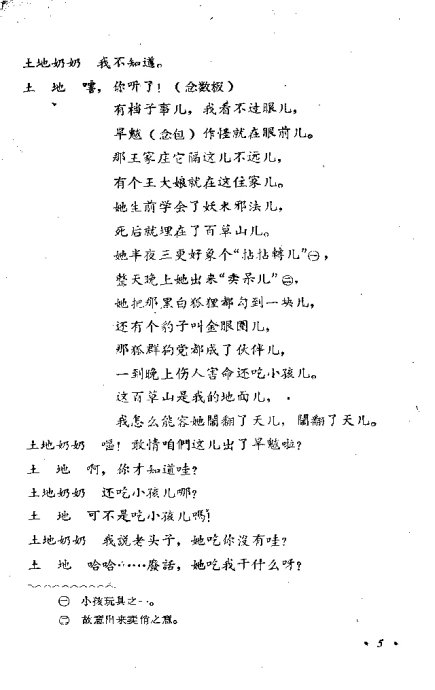 土地奶奶　我不知道。
土　地　嘻，你听了！（念数板）
有档子事儿，我看不过眼儿，
旱魃（念包）作怪就在眼前儿。
那王家庄它隔这儿不远儿，
有个王大娘就在这住家儿。
她生前学会了妖术邪法儿，
死后就埋在了百草山儿。
她半夜三更好象个“拈拈转儿”㊀，
整天晚上她出来“卖呆儿”㊁，
她把那黑白狐狸都勾到一块儿，
还有个豹子叫金眼圈儿，
那狐群狗党都成了伙伴儿，
一到晚上伤人害命还吃小孩儿。
这百草山是我的地面儿，
我怎么能容她闹翻了天儿，闹翻了天儿。
土地奶奶　噁！敢情咱們这儿出了旱魃啦？
土　地　啊，你才知道哇？
土地奶奶　还吃小孩儿哪？
土　地　可不是吃小孩儿嗎！
土地奶奶　我說老头子，她吃你沒有哇？
土　地　哈哈……廢話，她吃我干什么呀？
㊀　小孩玩具之一。
㊁　故意出来卖俏之意。
• 5 •